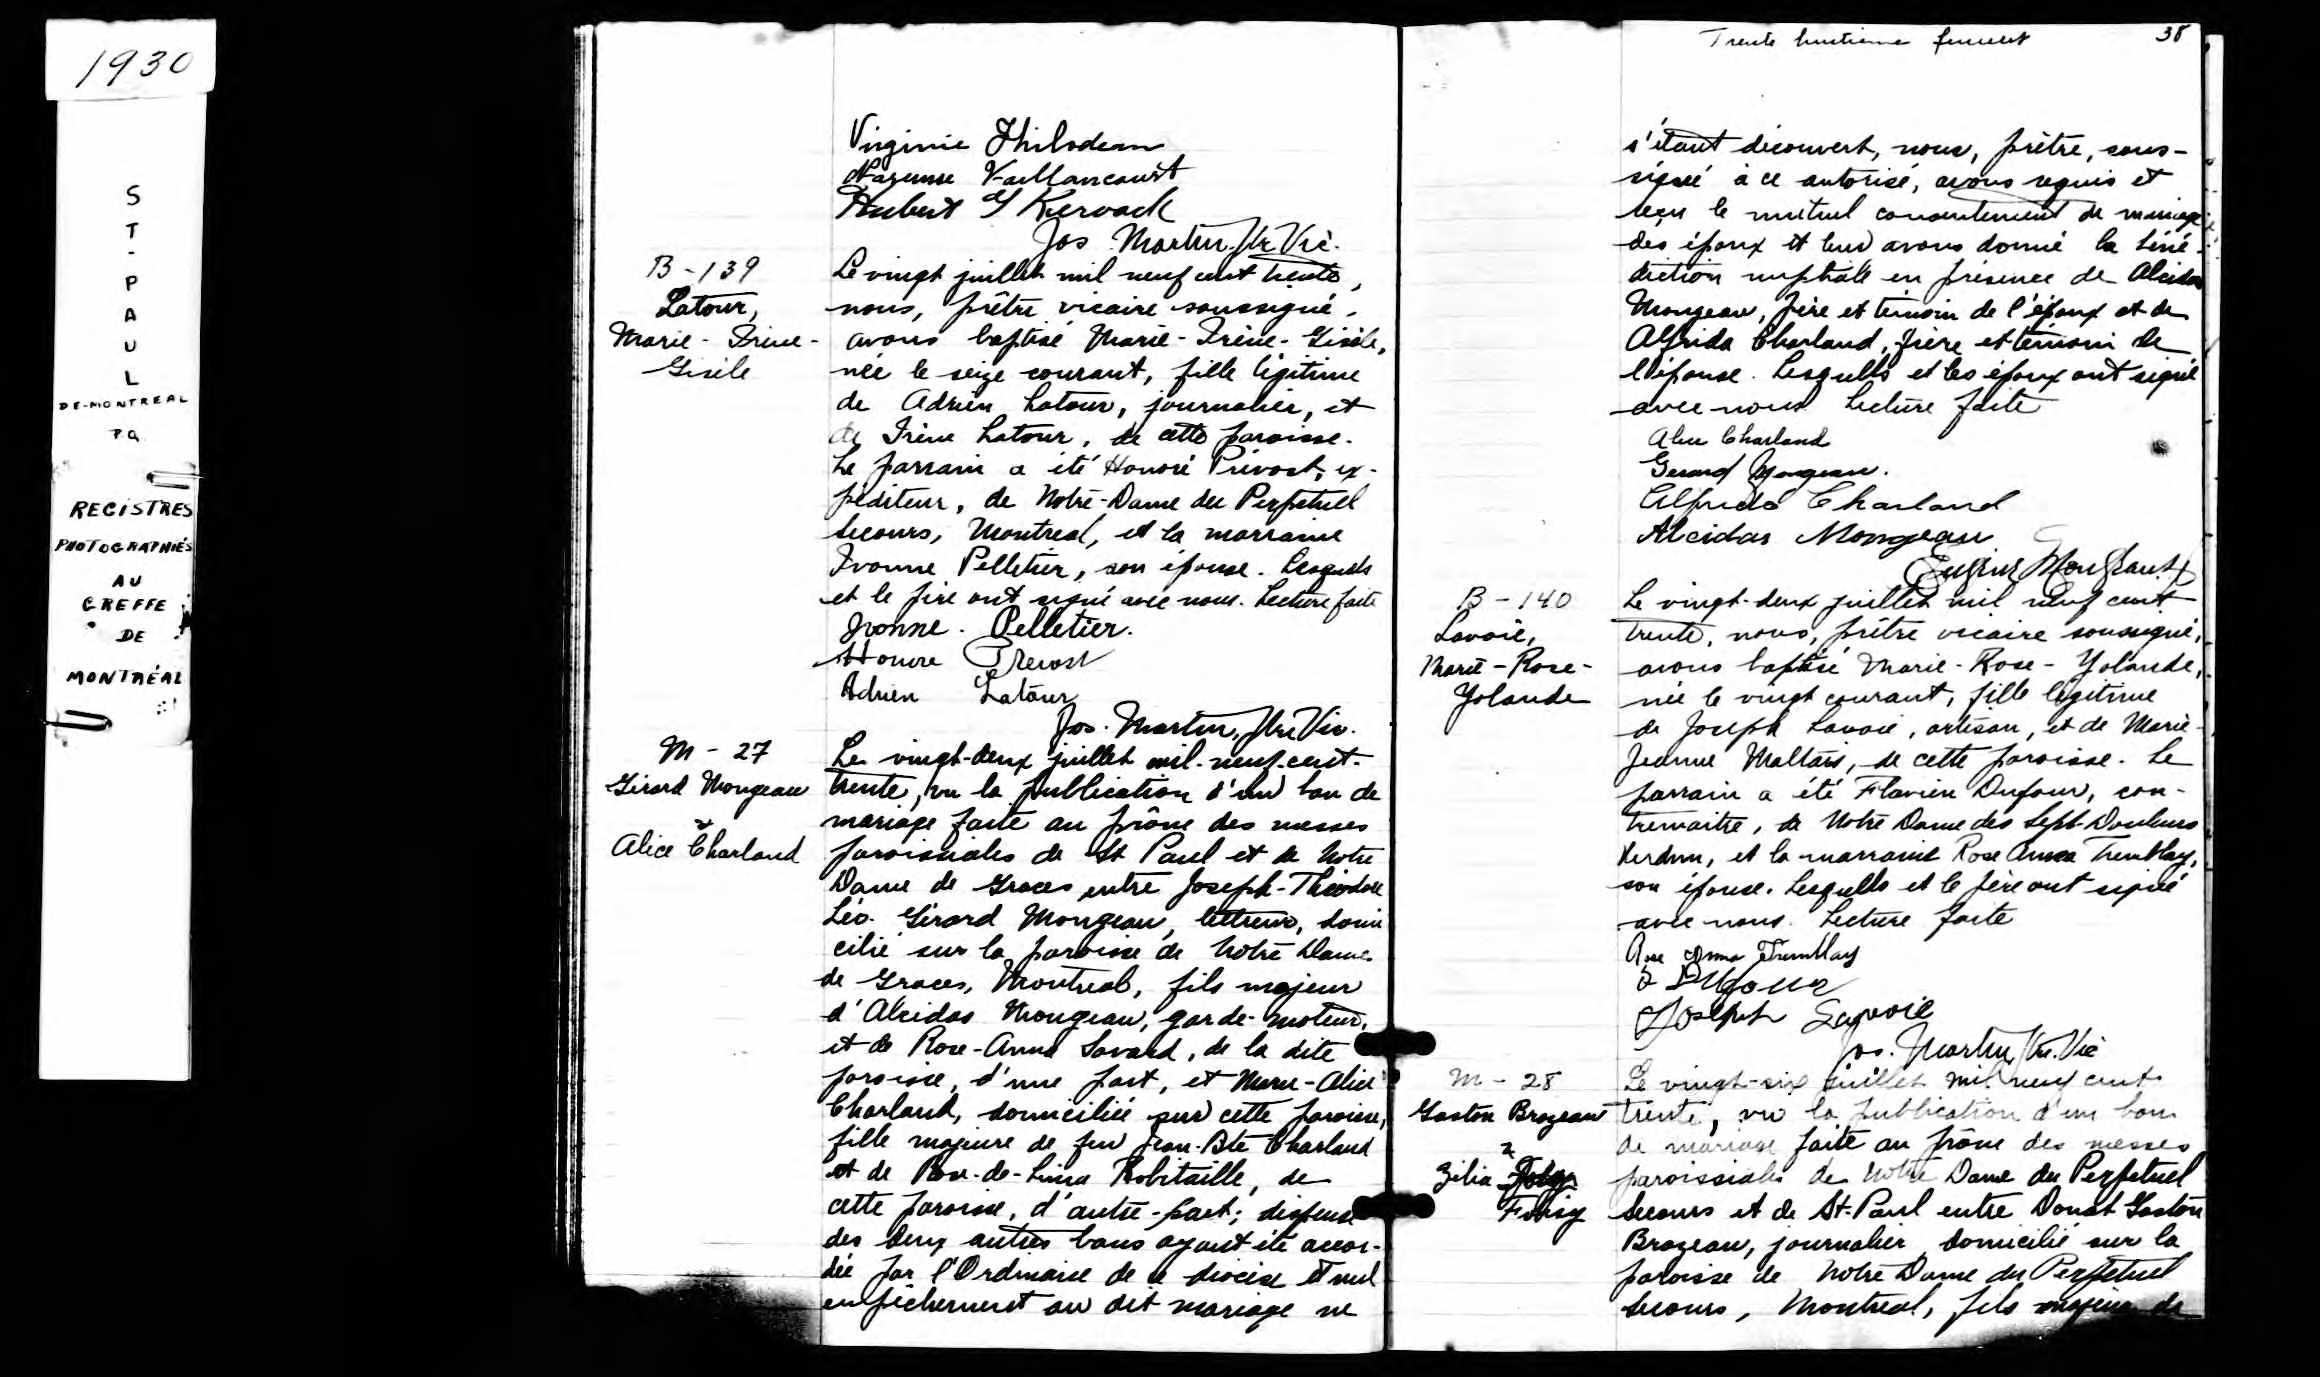 1930
ST-PAUL
DE-MONTREAL
P.Q.
REGISTRES
PHOTOGRAPHIÉS
AU
GREFFE
DE
MONTRÉAL
Virginie Philodeau
Vaillancourt
Hubert G Kervack
Jos. Martin, Ptr. Vic.
B - 139
Latour,
Marie - Irène -
Gisèle
Le vingt juillet mil neuf cent trente,
nous, prêtre vicaire soussigné,
avons baptisé Marie - Irène - Gisèle,
née le seize courant, fille légitime
de Adrien Latour, journalier, et
de Irène Latour, de cette paroisse.
Le parrain a été Honoré Prévost, ex-
péditeur, de Notre-Dame du Perpétuel
Secours, Montréal, et la marraine
Ivonne Pelletier, son épouse. Lesquels
et le père ont signé avec nous. Lecture faite
Ivonne. Pelletier.
Honore Prevost
Adrien Latour
Jos. Martin, Ptr. Vic.
M - 27
Gérard Mongeau
&
Alice Charland
Le vingt-deux juillet mil-neuf-cent-
trente, vu la publication d'un ban de
mariage faite au prône des messes
paroissiales de St Paul et de Notre
Dame de Graces entre Joseph-Théodore
Léo. Gérard Mongeau, lettreur, domi
cilié sur la paroisse de Notre Dame
de Graces, Montreal, fils majeur
d'Alcidas Mongeau, garde-moteur,
et de Rose-Anna Savard, de la dite
paroisse, d'une part, et Marie-Alice
Charland, domiciliée sur cette paroisse,
fille majeure de feu Jean-Bte Charland
et de Rose-de-Lima Robitaille, de
cette paroisse, d'autre-part; dispense
des deux autres bans ayant été accor-
dée par l'Ordinaire de ce diocèse et nul
empêchement au dit mariage ne
Trente huitième feuillet 38
s'étant découvert, nous, prêtre, sous-
signé à ce autorisé, avons requis et
reçu le mutuel consentement de mariage
des époux et leur avons donné la béné-
diction nuptiale en présence de Alcidas
Mongeau, père et témoin de l'époux et de
Alfrida Charland, frère et témoin de
l'épouse. Lesquels et les époux ont signé
avec nous. Lecture faite
Alice Charland
Gerard Mongeau.
Alfrida Charland
Alcidas Mongeau
B - 140
Lavoie,
Marie - Rose -
Yolande
Le vingt-deux juillet mil neuf cent
trente, nous, prêtre vicaire soussigné,
avons baptisé Marie - Rose - Yolande,
née le vingt courant, fille légitime
de Joseph Lavoie, artisan, et de Marie-
Jeanne Maltais, de cette paroisse. Le
parrain a été Flavien Dufour, con-
tremaitre, de Notre Dame des Sept-Douleurs
Verdun, et la marraine Rose Anna Tremblay,
son épouse. Lesquels et le père ont signé
avec nous. Lecture faite
Rose Anna Tremblay
Dufour
Joseph Lavoie
Jos. Martin Ptr. Vic
M - 28
Gaston Brazeau
&
Zélia
Foisy
Le vingt-six juillet mil neuf cent
trente, vu la publication d'un ban
de mariage faite au prône des messes
paroissiales de Notre Dame du Perpétuel
Secours et de St-Paul entre Donat Gaston
Brazeau, journalier, domicilié sur la
paroisse de Notre Dame du Perpétuel
Secours, Montreal, fils majeur de